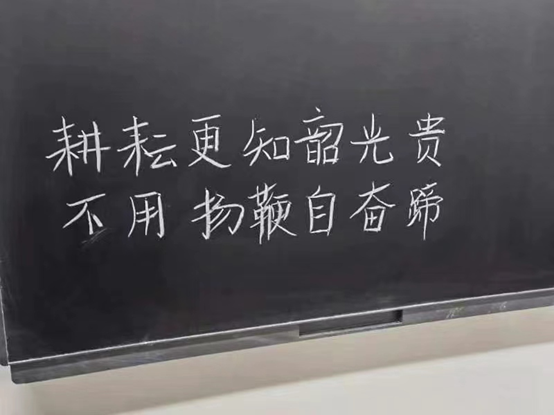 耕耘更知韶光贵
不用扬鞭自奋蹄